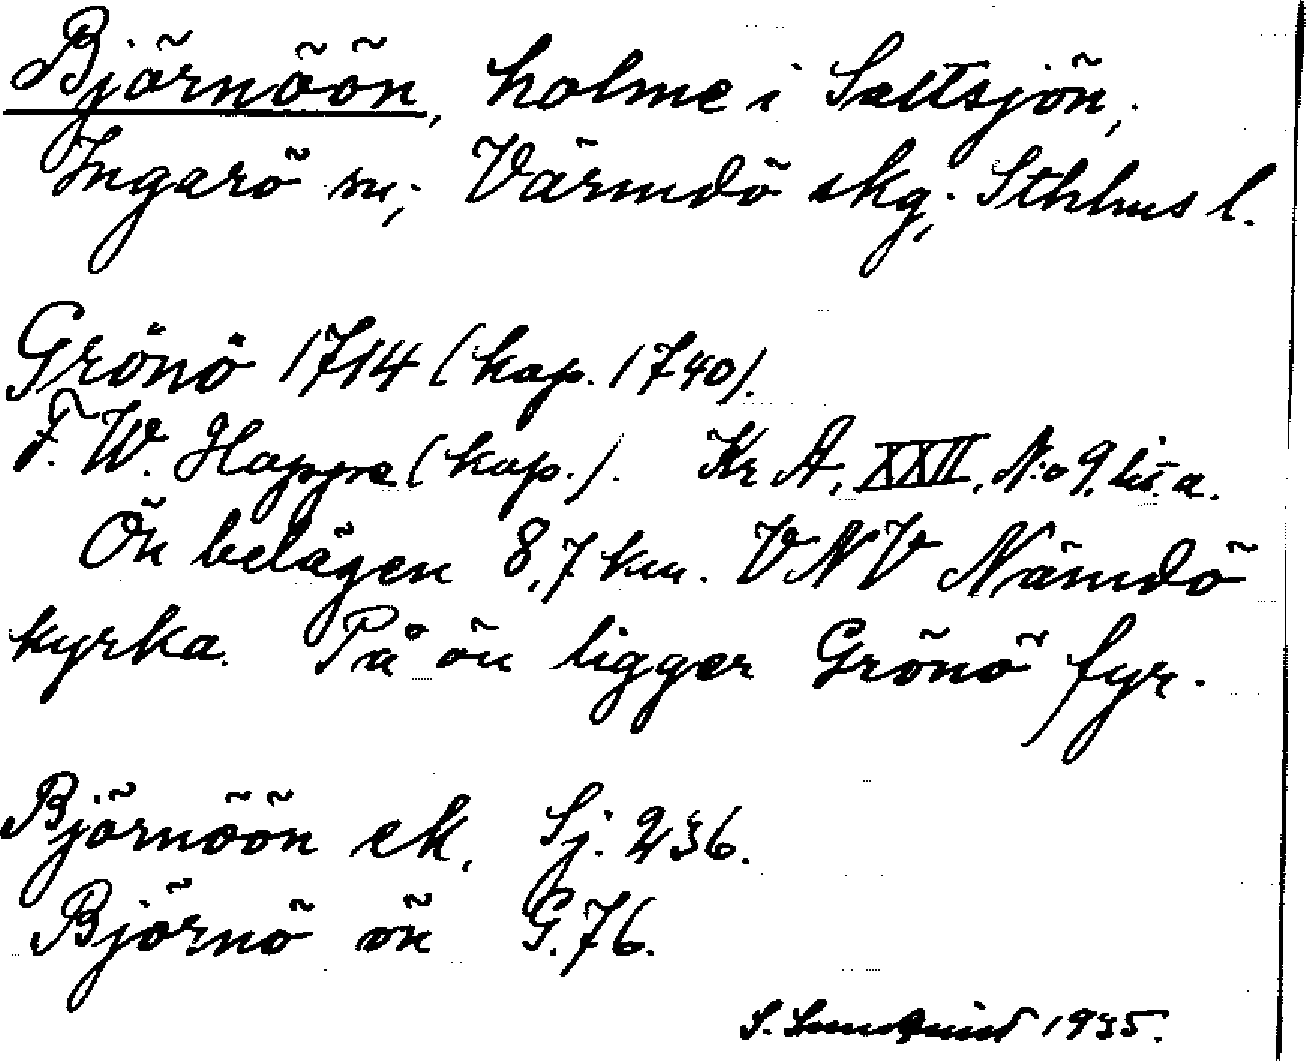 Björnöön, holme i Saltsjön,
Ingarö sn; Värmdö skg; Sthlms l.
Grönö 1714 (kop. 1740).
F. W. Hoppe (kop.). Kr A, XXII, N:o 9, lit. a.
Ön belägen 8,7 km. VNV Nämdö
kyrka. På ön ligger Grönö fyr.
Björnöön ek. Sj. 236.
Björnö ön G. 76.
S. 1935.